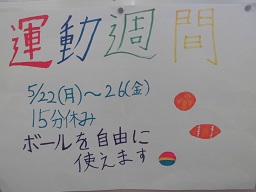 運動週間
5/22(月)～26(金)
15分休み
ボールを自由に
使えます